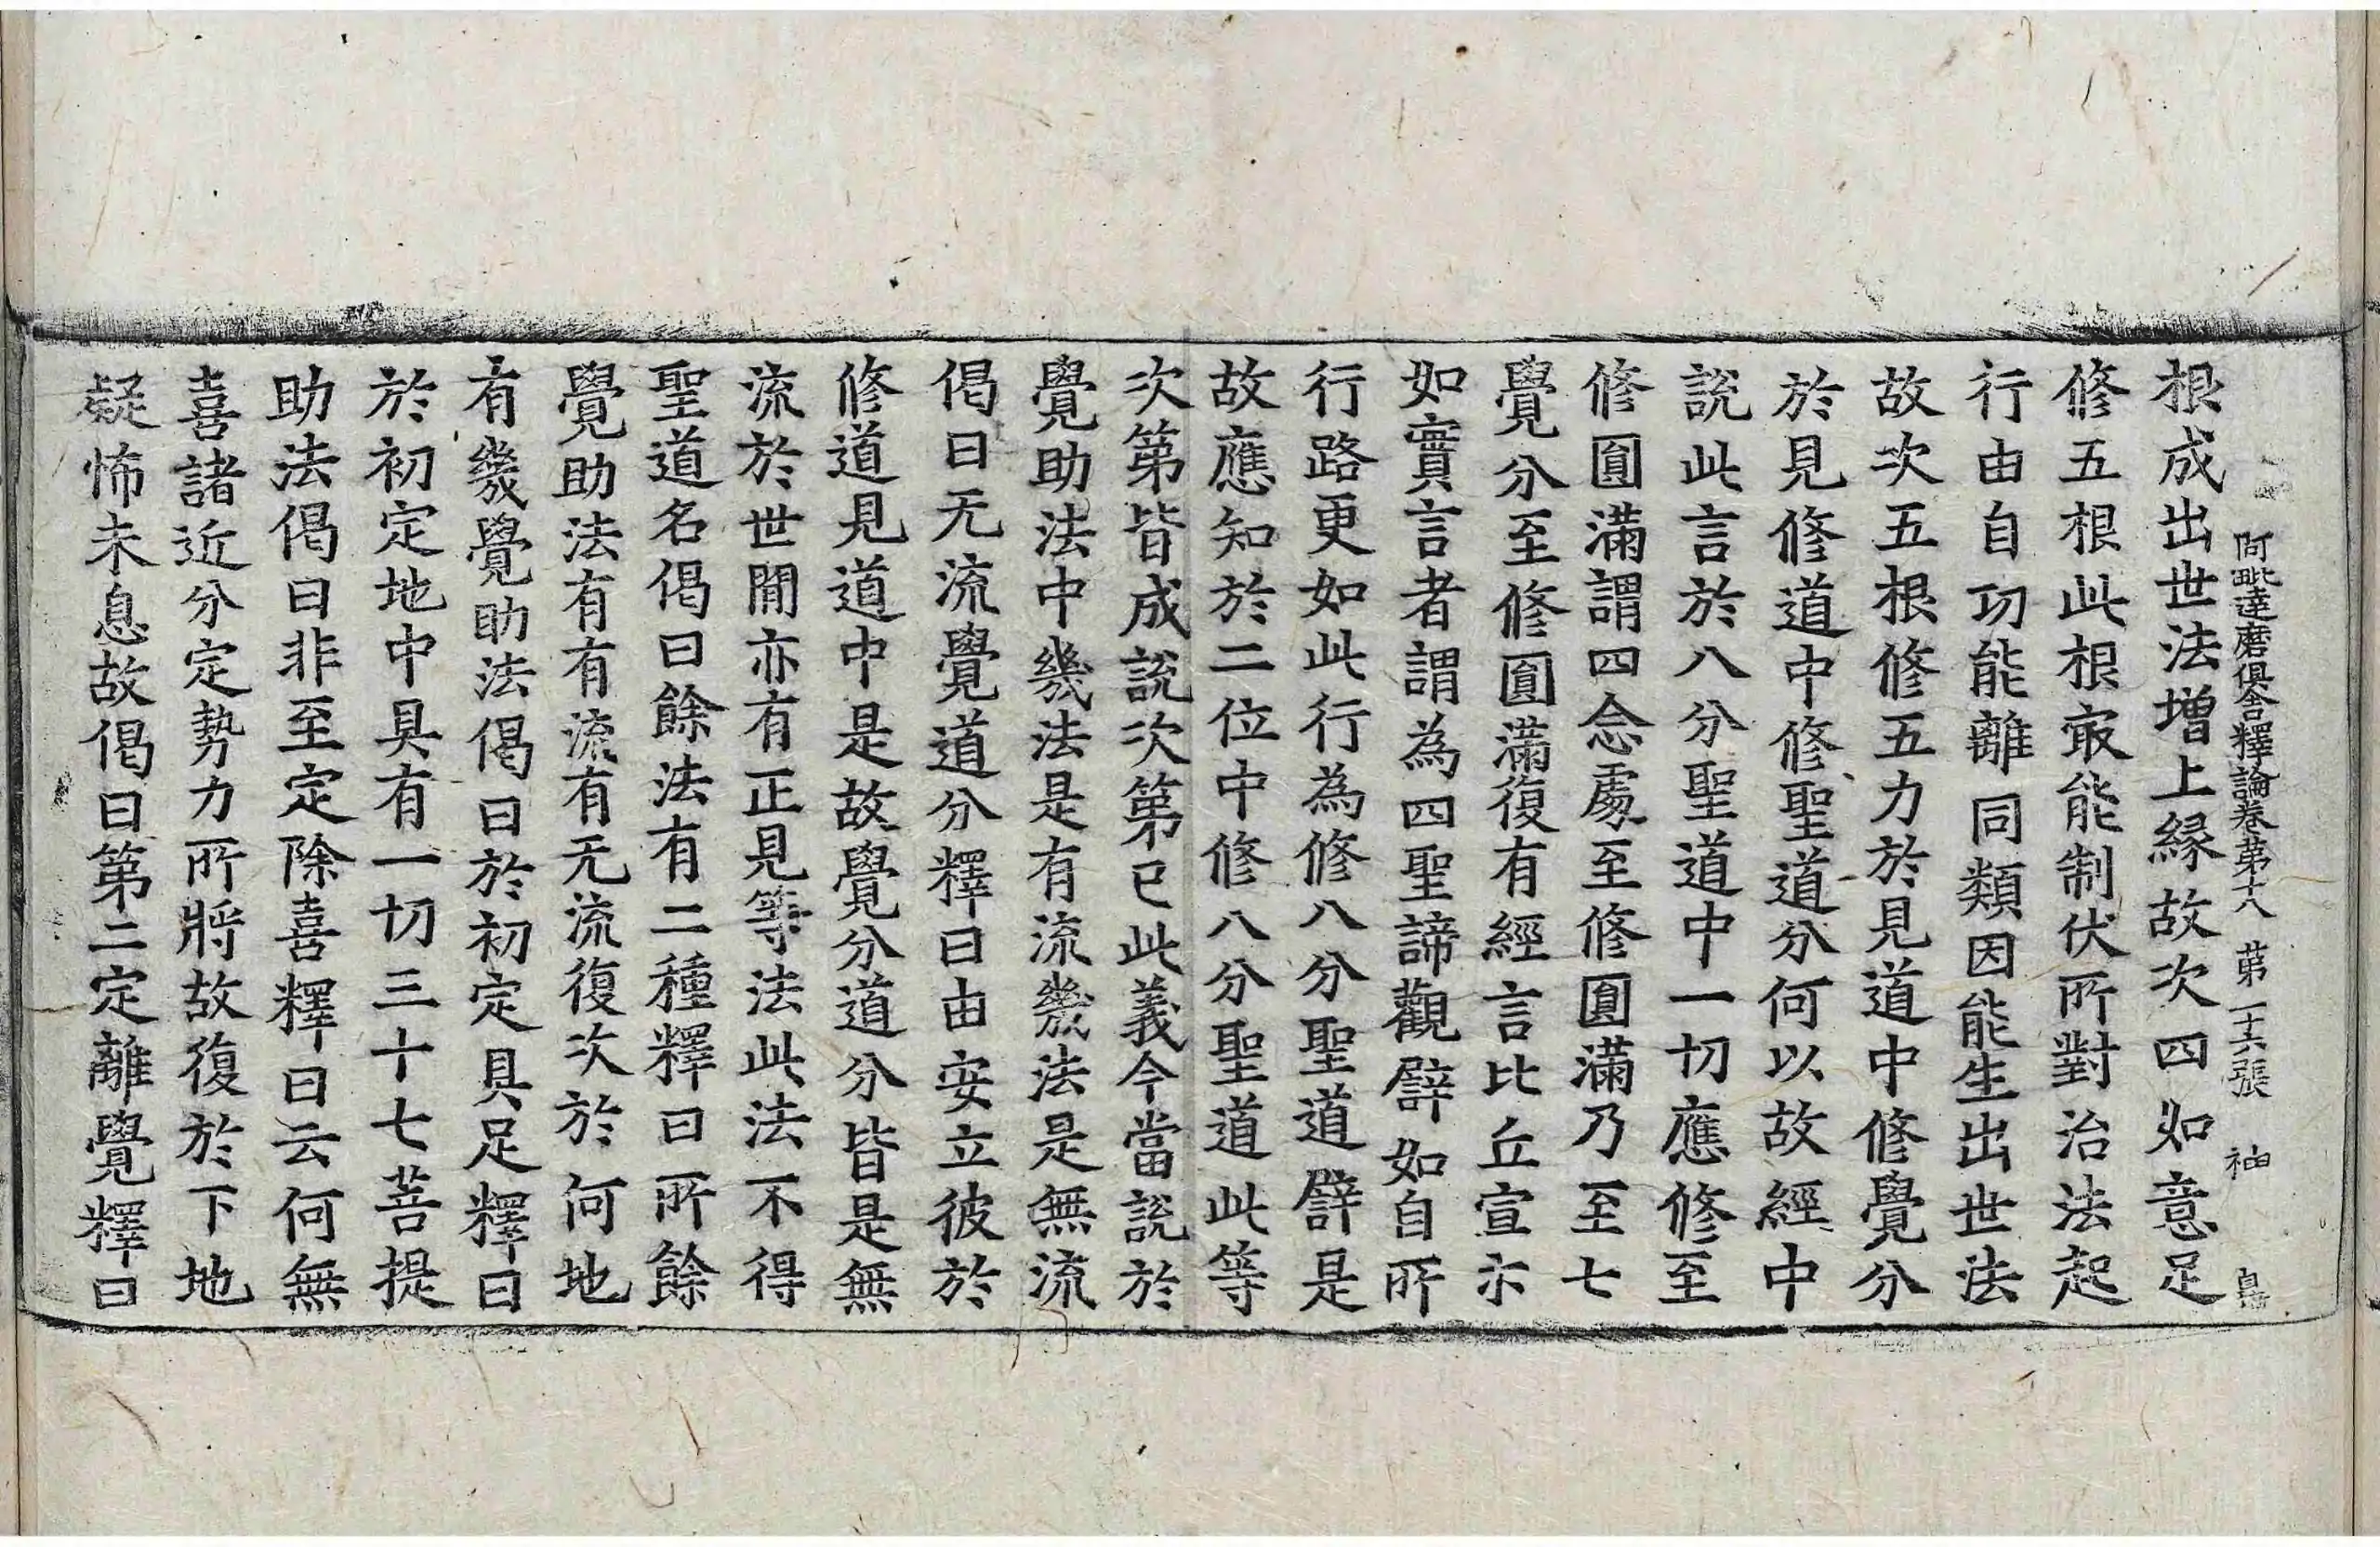 阿毗達磨俱舍釋論卷第十八 第二十六張 𥙿
根成出世法增上緣故次四如意足
修五根此根㝡能制伏所對治法起
行由自功能離同類因能生出世法
故次五根修五力於見道中修覺分
於見修道中修聖道分何以故經中
說此言於八分聖道中一切應修至
修圓滿謂四念處至修圓滿乃至七
覺分至修圓滿復有經言比丘宣示
如實言者謂為四聖諦觀譬如自所
行路更如此行為修八分聖道譬是
故應知於二位中修八分聖道此等
次第皆成說次第已此義今當說於
覺助法中幾法是有流幾法是無流
偈曰无流覺道分釋曰由安立彼於
修道見道中是故覺分道分皆是無
流於世間亦有正見等法此法不得
聖道名偈曰餘法有二種釋曰所餘
覺助法有有流有无流復次於何地
有幾覺助法偈曰於初定具足釋曰
於初定地中具有一切三十七菩提
助法偈曰非至定除喜釋曰云何無
喜諸近分定勢力所將故復於下地
疑怖未息故偈曰第二定離覺釋曰